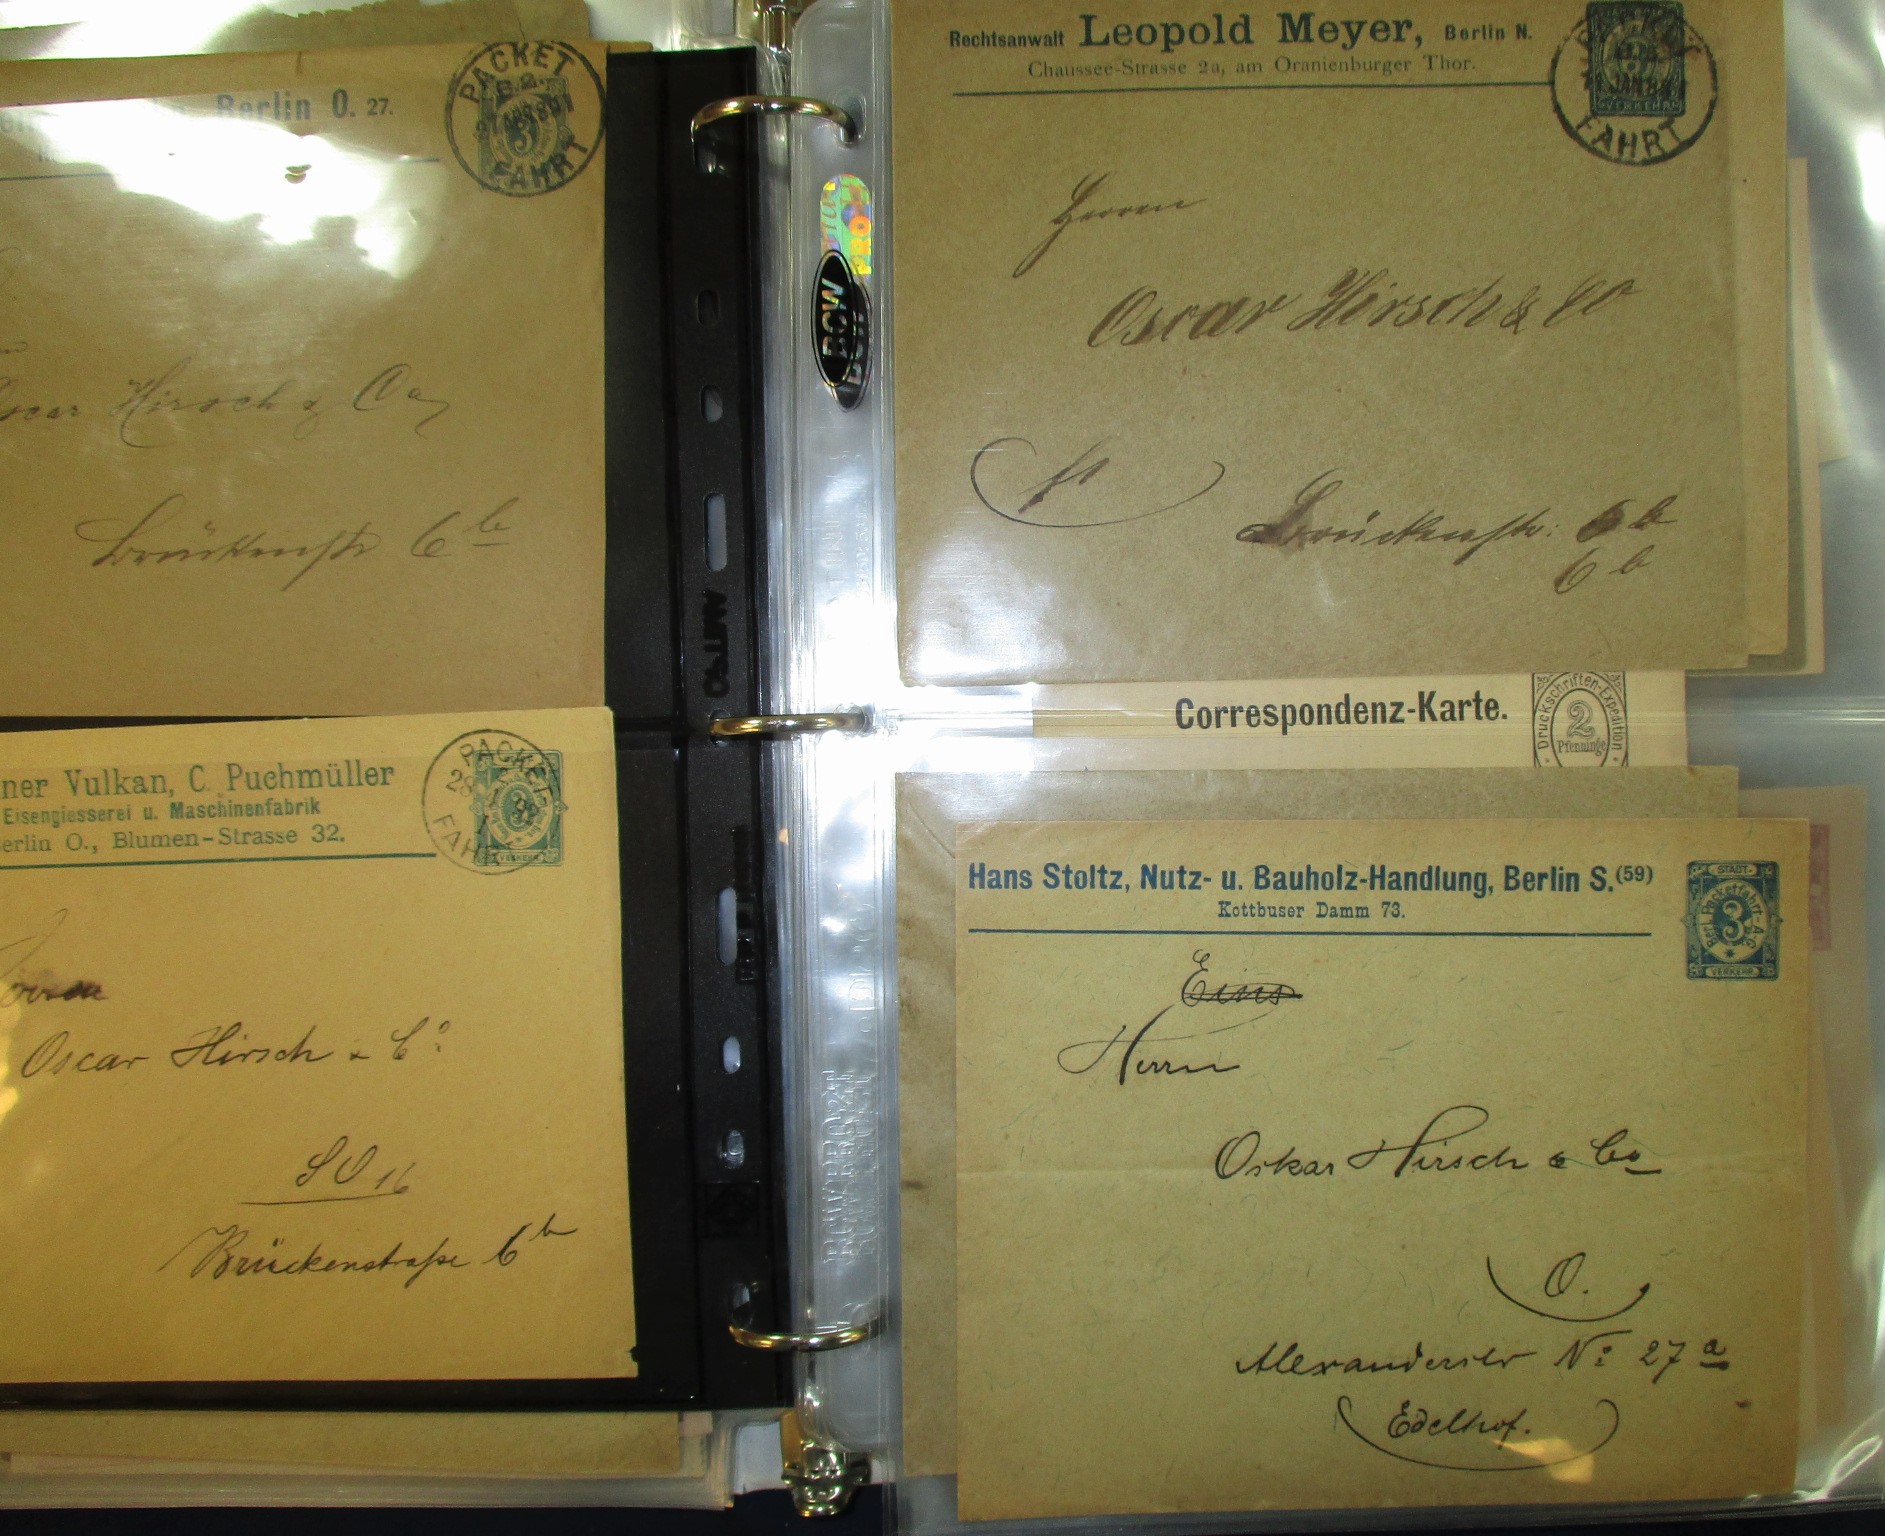 Berlin O. 27.
PACKET
FAHRT
3
Hirsch & Co
Brückenstr 6b
ner Vulkan, C. Puchmüller
Eisengiesserei u. Maschinenfabrik
erlin O., Blumen-Strasse 32.
PACKET
28
FAHRT
VERKEHR
Oscar Hirsch & Co
SO 16
Brückenstraße 6b
BCW
Rechtsanwalt Leopold Meyer, Berlin N.
Chaussee-Strasse 2a, am Oranienburger Thor.
FAHRT
VERKEHR
Herren
Oscar Hirsch & Co
Brückenstr: 6b
6b
Correspondenz-Karte.
Druckschriften-Expedition
2
Pfennige
Hans Stoltz, Nutz- u. Bauholz-Handlung, Berlin S.(59)
Kottbuser Damm 73.
STADT-
Berl. Packetfahrt-A-G.
3
VERKEHR
Eins
Herrn
Oskar Hirsch & Co
O.
Alexanderstr No 27a
Edelhof.